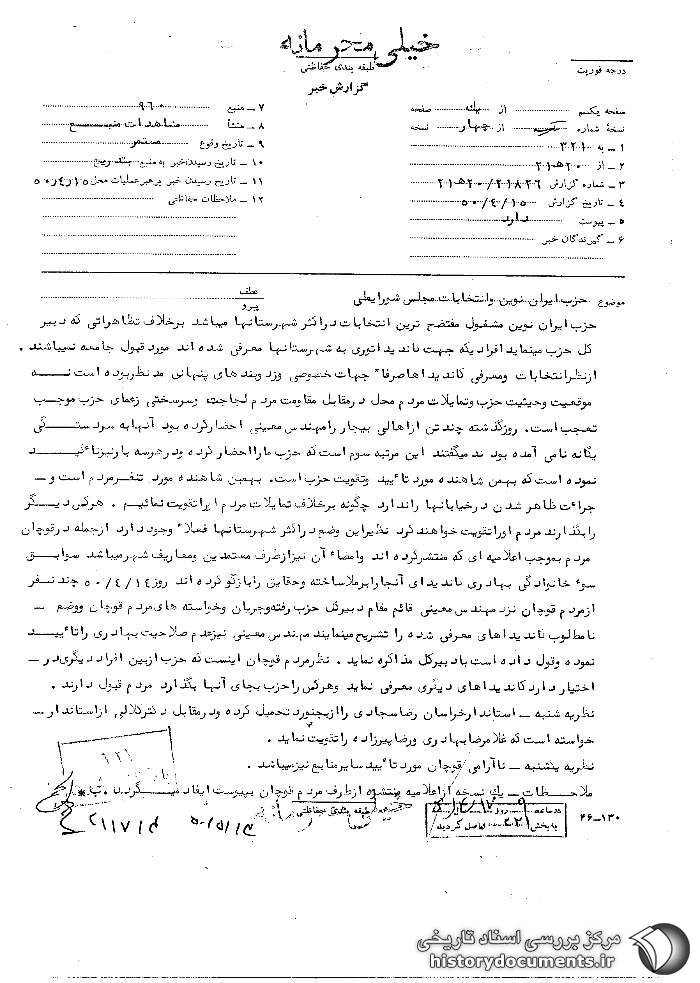 خیلی محرمانه
طبقه بندی حفاظتی
گزارش خبر
درجه فوریت
صفحه یکم از یک صفحه
نسخهٔ شماره از چهار نسخه
۱ ـ به ۳۲۱
۲ ـ از ۲۰هـ۲۱
۳ ـ شماره گزارش ۲۱۸۲۶/۲۰هـ۲۱
۴ ـ تاریخ گزارش ۵۰/۴/۱۵
۵ ـ پیوست دارد
۶ ـ گیرندگان خبر
۷ ـ منبع ۹۶۰
۸ ـ منشأ مشاهدات منبع
۹ ـ تاریخ وقوع مستمر
۱۰ ـ تاریخ رسیدن خبر به منبع بتدریج
۱۱ ـ تاریخ رسیدن خبر برهبر عملیات محل ۵۰/۴/۱۵
۱۲ ـ ملاحظات حفاظتی
موضوع حزب ایران نوین وانتخابات مجلس شورایملی
عطف
پیرو
حزب ایران نوین مشغول مفتضح ترین انتخابات دراکثر شهرستانها میباشد برخلاف تظاهراتی که دبیر
کل حزب مینماید افرادیکه جهت کاندیداتوری به شهرستانها معرفی شده اند مورد قبول جامعه نمیباشند .
ازنظرانتخابات ومعرفی کاندیداها صرفاً جهات خصوصی وزدوبندهای پنهانی مدنظربوده است نه
موقعیت وحیثیت حزب وتمایلات مردم محل درمقابل مقاومت مردم لجاجت وسرسختی زعمای حزب موجب
تعجب است. روزگذشته چندتن ازاهالی بیجار رامهندس معینی احضارکرده بود آنها به سردستگی
یگانه نامی آمده بودند میگفتند این مرتبه سوم است که حزب مارا احضار کرده ودرهرسه بارنیزتائید
نموده است که بهمن شاهنده مورد تأیید وتقویت حزب است. بهمن شاهنده مورد تنفرمردم است و
جرات ظاهر شدن درخیابانها راندارد چگونه برخلاف تمایلات مردم اورا تقویت نمائیم . هرکس دیگر
رابگذارند مردم اوراتقویت خواهندکرد نظیراین وضع دراکثر شهرستانها فعلاً وجود دارد ازجمله درقوچان
مردم بموجب اعلامیه ای که منتشرکرده اند وامضاء آن نیزازطرف معتمدین ومعاریف شهرمیباشد سوابق
سوء خانوادگی بهادری کاندیدای آنجا رابرملا ساخته وحقایق رابازگو کرده اند روز ۵۰/۴/۱۴ چندنفر
ازمردم قوچان نزد مهندس معینی قائم مقام دبیرکل حزب رفته وجریان وخواسته های مردم قوچان ووضع
نامطلوب کاندیداهای معرفی شده را تشریح مینمایند مهندس معینی نیزعدم صلاحیت بهادری راتائید
نموده وقول داده است بادبیرکل مذاکره نماید . نظرمردم قوچان اینست که حزب ازبین افراد دیگری در
اختیار دارد کاندیداهای دیگری معرفی نماید وهرکس راحزب بجای آنها بگذارد مردم قبول دارند .
نظریه شنبه ـ استاندارخراسان رضا سجادی را ازبجنورد تحمیل کرده ودرمقابل دکترکلالی ازاستاندار
خواسته است که غلامرضا بهادری ورضا پیرزاده راتقویت نماید .
نظریه یکشنبه ـ ناآرامی قوچان مورد تأیید سایرمنابع نیزمیباشد .
ملاحظات ـ یک نسخه ازاعلامیه منتشره ازطرف مردم قوچان بپیوست ایفاد میگردد.
۱۲۱
طبقه بندی حفاظتی
در ساعت ۹ روز
به بخش ۳۲۱ واصل گردید
۴۶ـ۱۳۰
مرکز بررسی اسناد تاریخی
historydocuments.ir